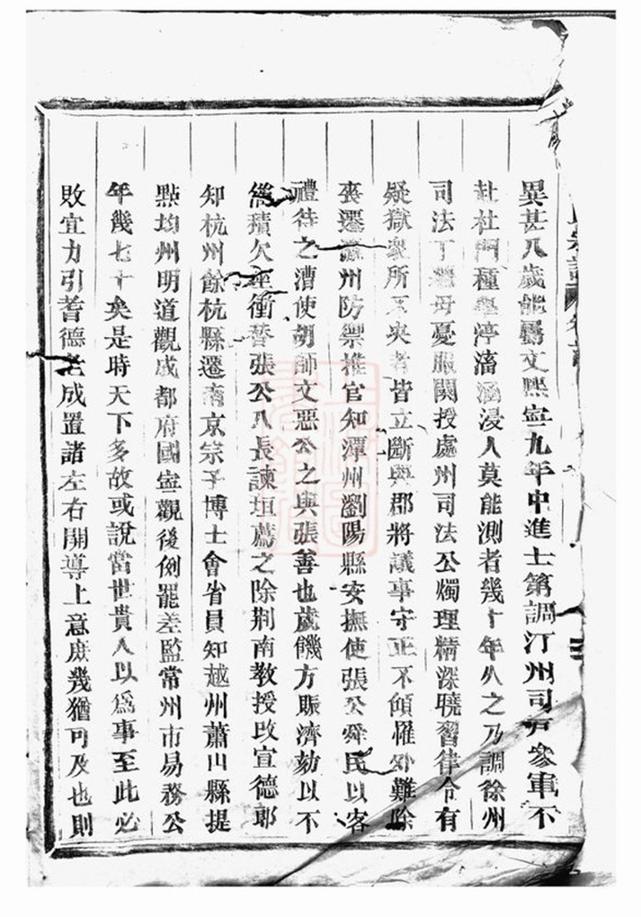 異甚八歲能屬文熙寧九年中進士第調汀州司戶參軍不
赴杜門種學渟滀涵浸人莫能測者幾十年久之乃調徐州
司法丁繼母憂服闋授處州司法公燭理精深曉習律令有
疑獄衆所不决者皆立斷與郡將議事守正不傾罹外難除
喪遷瀛州防禦推官知潭州瀏陽縣安撫使張公舜民以客
禮待之漕使胡師文惡公之與張善也歲饑方賑濟劾以不
催積欠坐衝替張公入長諫垣薦之除荆南教授改宣德郎
知杭州餘杭縣遷南京宗子博士會省員知越州蕭山縣提
㸃均州明道觀成都府國寧觀後例罷差監常州市易務公
年幾七十矣是時天下多故或說當世貴人以爲事至此必
敗宜力引耆德老成置諸左右開導上意庶幾猶可及也則